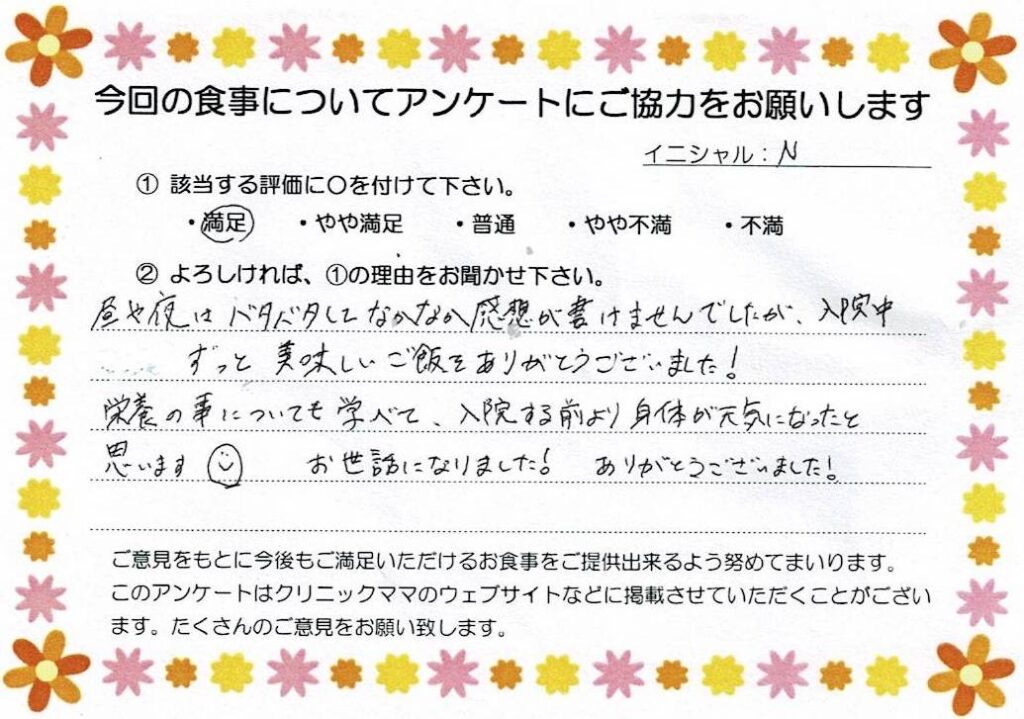 今回の食事についてアンケートにご協力をお願いします
イニシャル：N
① 該当する評価に〇を付けて下さい。
・満足　・やや満足　・普通　・やや不満　・不満
② よろしければ、①の理由をお聞かせ下さい。
昼や夜はバタバタしてなかなか感想が書けませんでしたが、入院中
ずっと美味しいご飯をありがとうございました！
栄養の事についても学べて、入院する前より身体が元気になったと
思います　お世話になりました！　ありがとうございました！
ご意見をもとに今後もご満足いただけるお食事をご提供出来るよう努めてまいります。
このアンケートはクリニックママのウェブサイトなどに掲載させていただくことがござい
ます。たくさんのご意見をお願い致します。